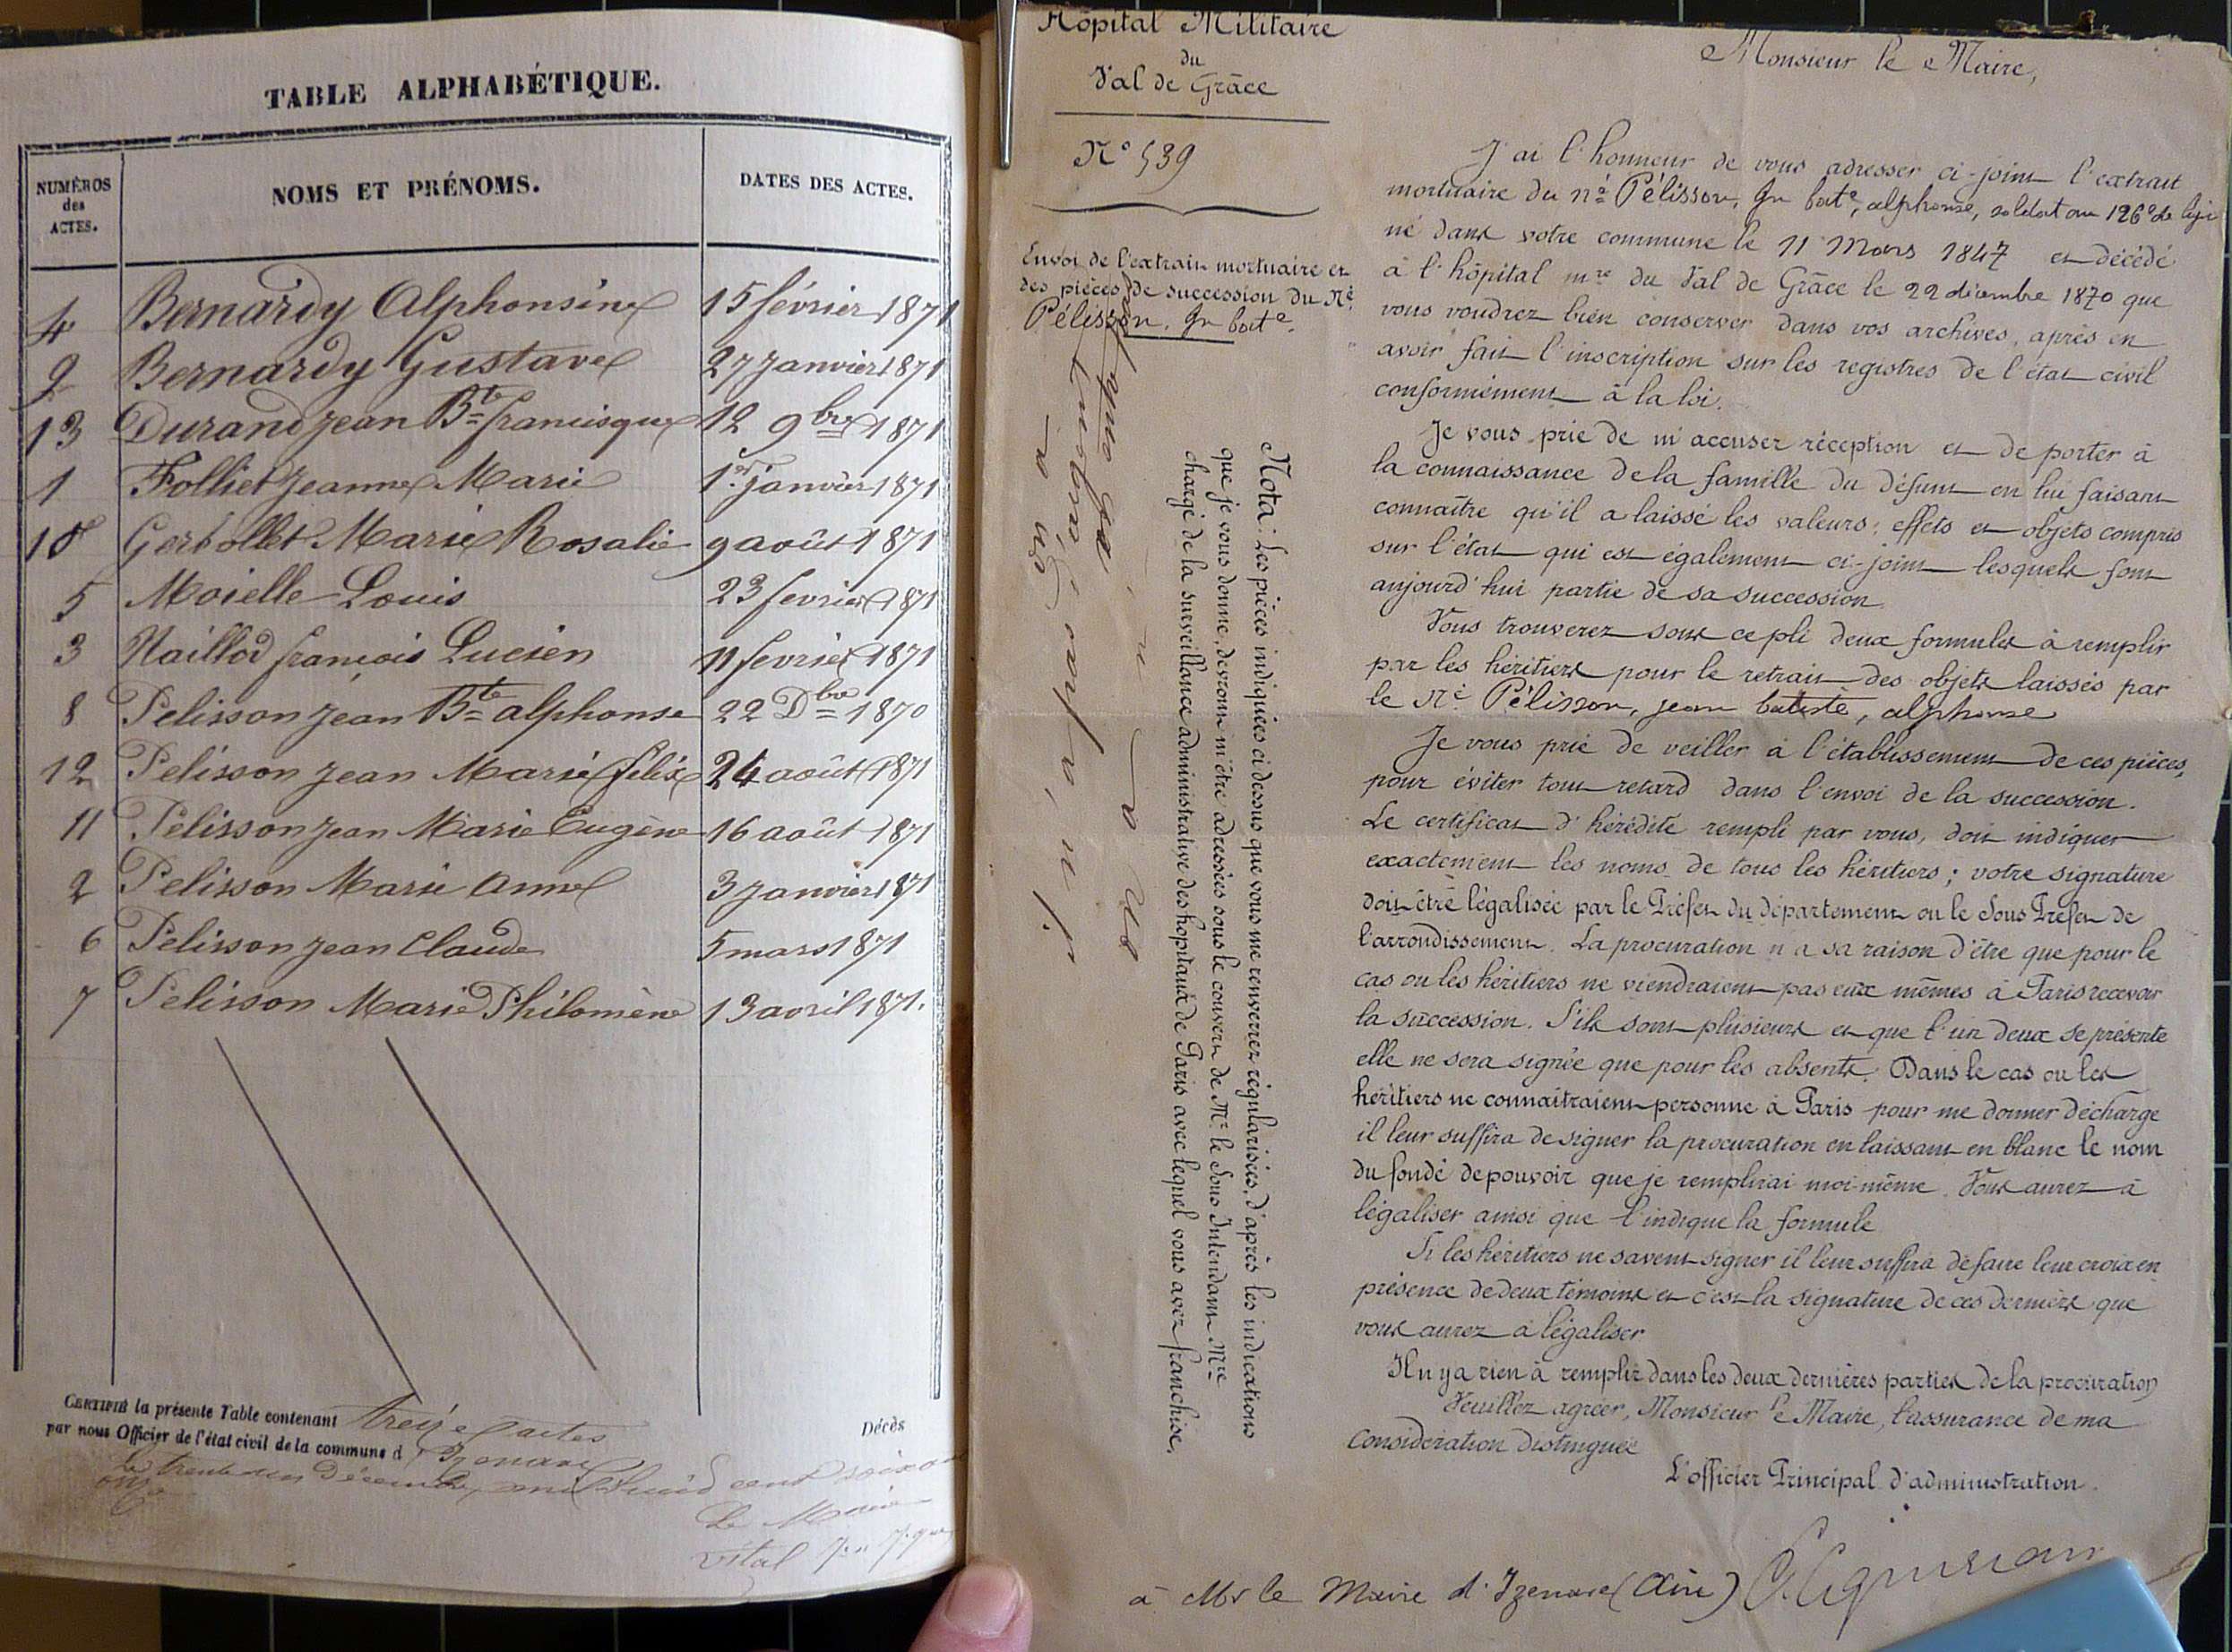 TABLE ALPHABÉTIQUE.
NUMÉROS des ACTES.
NOMS ET PRÉNOMS.
DATES DES ACTES.
4 Bernardy Alphonsine 15 février 1871
9 Bernardy Gustave 27 Janvier 1871
13 Durand Jean Bte francisque 12 9bre 1871
1 Folliet Jeanne Marie 1er janvier 1871
10 Gerbollet Marie Rosalie 9 août 1871
5 Moielle Louis 23 fevrier 1871
3 Naillod françois Lucien 11 fevrier 1871
8 Pelisson Jean Bte alphonse 22 Dbre 1870
12 Pelisson Jean Marie félix 24 août 1871
11 Pelisson Jean Marie Eugène 16 août 1871
2 Pelisson Marie Anne 3 Janvier 1871
6 Pelisson Jean Claude 5 mars 1871
7 Pelisson Marie Philomène 13 avril 1871.
CERTIFIÉ la présente Table contenant treize actes
par nous Officier de l'état civil de la commune d'Izenave
Décès
le trente un Décembre mil huit cent soixante
onze
Le Maire
Vital
Hôpital Militaire
du
Val de Grâce
N° 539
Envoi de l'extrait mortuaire et
des pièces de succession du Né
Pélisson, Jn bate.
Nota: Les pièces indiquées ci dessus que vous me renverrez régularisées, d'après les indications
que je vous donne, devront m'être adressées sous le couvert de Mr le Sous Intendant Mre
chargé de la surveillance administrative des hôpitaux de Paris avec lequel vous avez franchise.
Monsieur le Maire,
J'ai l'honneur de vous adresser ci-joint l'extrait
mortuaire du né Pélisson, Jn bate, alphonse, soldat au 126e de ligne
né dans votre commune le 11 Mars 1847 et décédé
à l'hôpital mre du Val de Grâce le 22 décembre 1870 que
vous voudrez bien conserver dans vos archives, après en
avoir fait l'inscription sur les registres de l'état civil
conformément à la loi.
Je vous prie de m'accuser réception et de porter à
la connaissance de la famille du défunt en lui faisant
connaître qu'il a laissé les valeurs, effets et objets compris
sur l'état qui est également ci-joint lesquels font
aujourd'hui partie de sa succession.
Vous trouverez sous ce pli deux formules à remplir
par les héritiers pour le retrait des objets laissés par
le Né Pélisson, jean batiste, alphonse
Je vous prie de veiller à l'établissement de ces pièces,
pour éviter tout retard dans l'envoi de la succession.
Le certificat d'hérédité rempli par vous, doit indiquer
exactement les noms de tous les héritiers; votre signature
doit être légalisée par le Préfet du département ou le Sous Préfet de
l'arrondissement. La procuration n'a sa raison d'être que pour le
cas ou les héritiers ne viendraient pas eux mêmes à Paris recevoir
la succession. S'ils sont plusieurs et que l'un deux se présente
elle ne sera signée que pour les absents. Dans le cas ou les
héritiers ne connaîtraient personne à Paris pour me donner décharge
il leur suffira de signer la procuration en laissant en blanc le nom
du fondé de pouvoir que je remplirai moi-même. Vous aurez à
légaliser ainsi que l'indique la formule
Si les héritiers ne savent signer il leur suffira de faire leur croix en
présence de deux témoins et c'est la signature de ces derniers que
vous aurez à légaliser
Il n'y a rien à remplir dans les deux dernières parties de la procuration
Veuillez agréer, Monsieur le Maire, l'assurance de ma
considération distinguée
L'officier Principal d'administration.
à Mr le Maire d'Izenave (Ain)